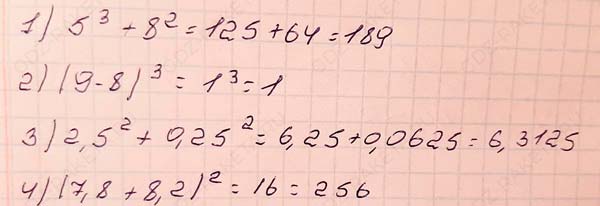 1) 5³ + 8² = 125 + 64 = 189
2) (9 - 8)³ = 1³ = 1
3) 2,5² + 0,25² = 6,25 + 0,0625 = 6,3125
4) (7,8 + 8,2)² = 16 = 256